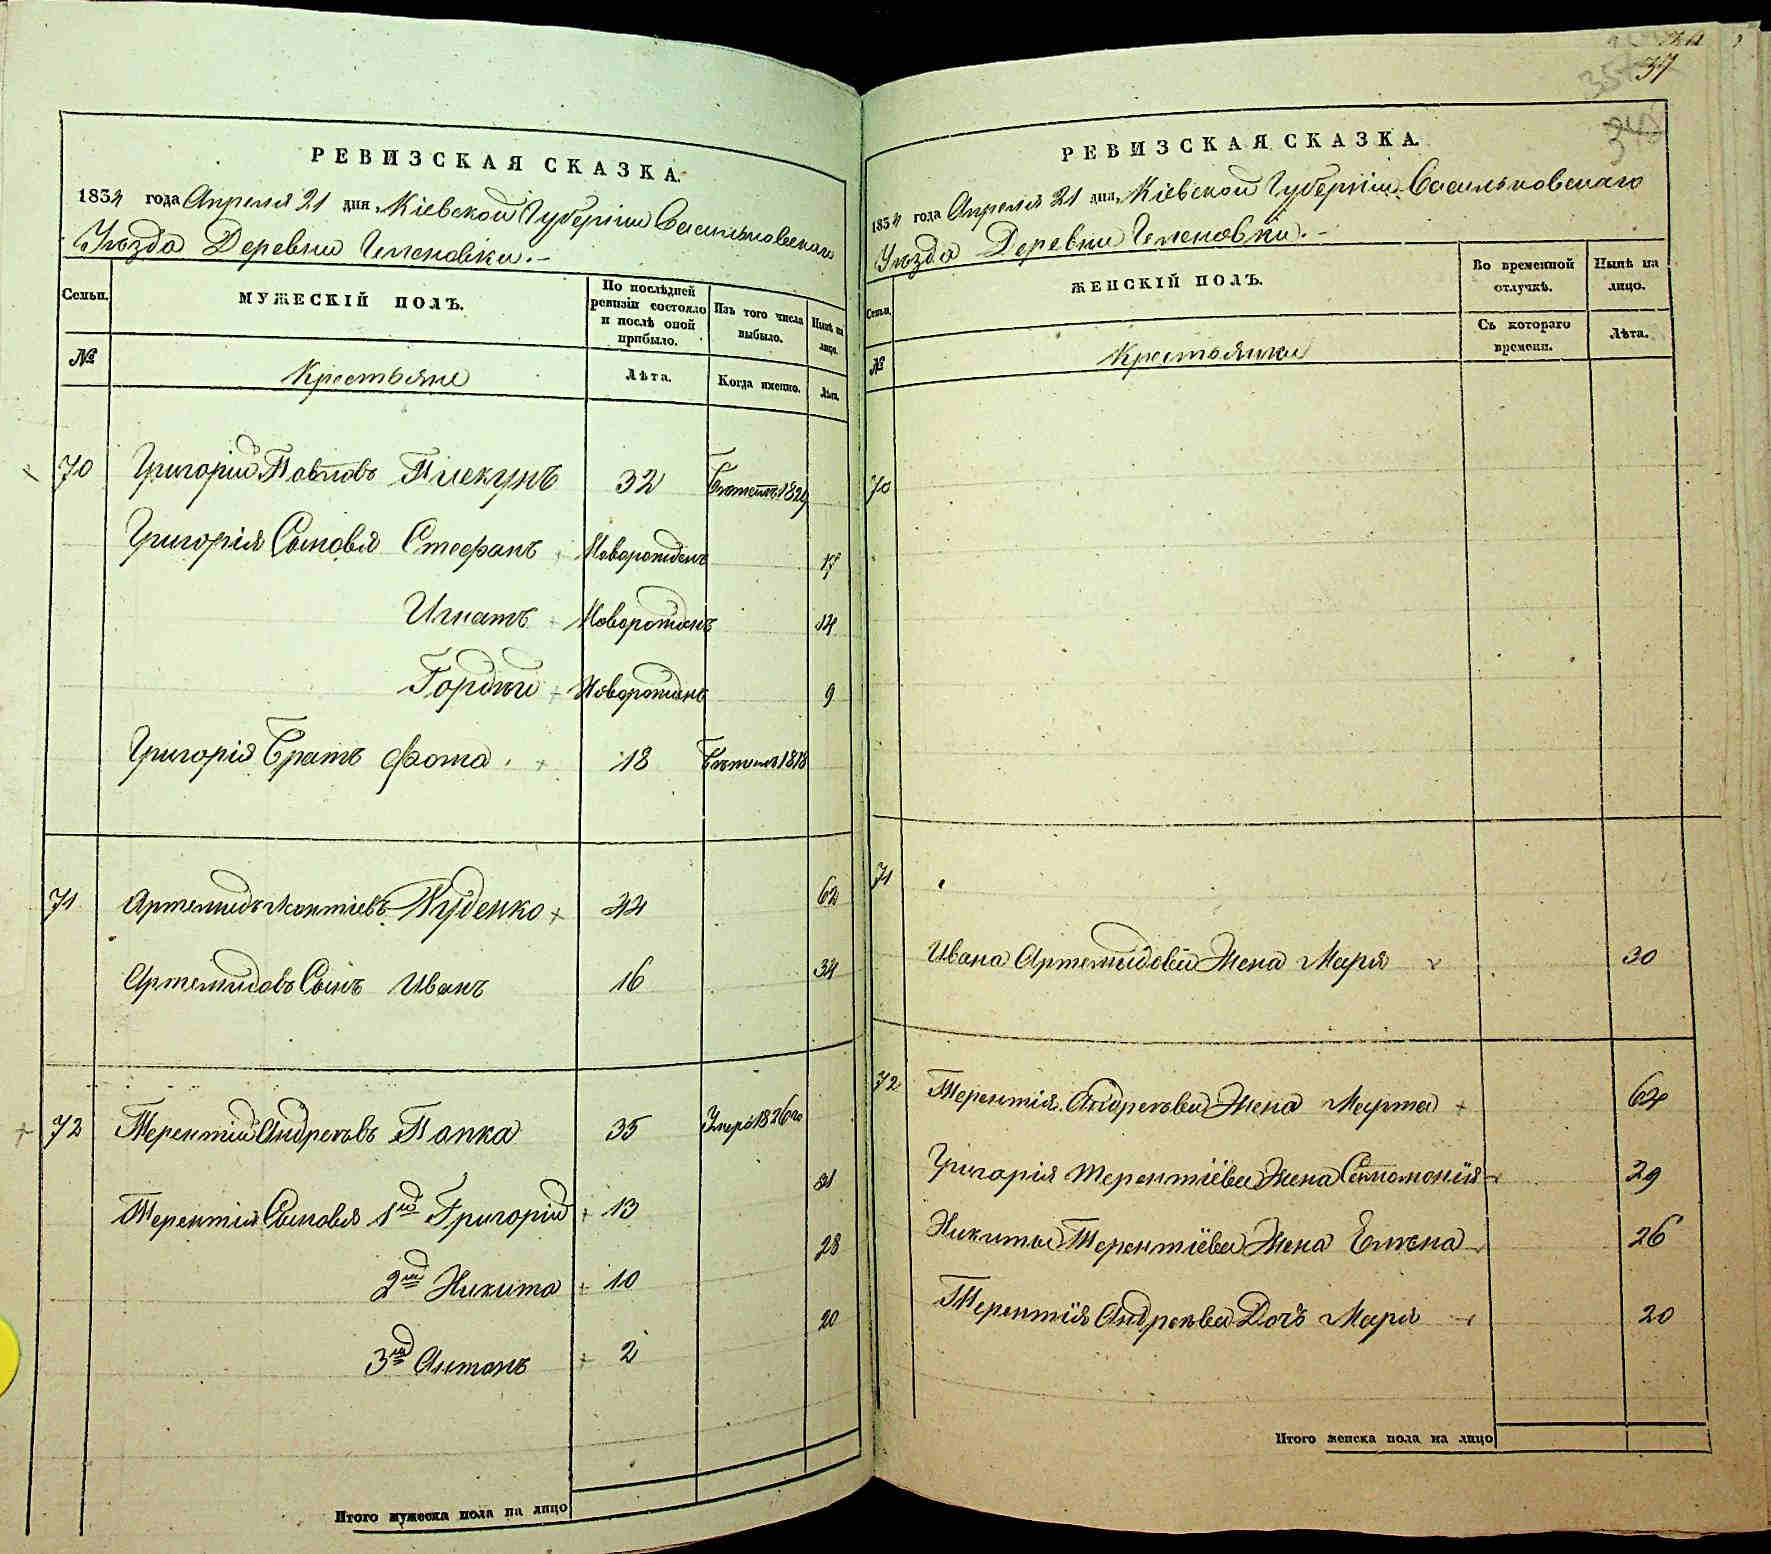 37
РЕВИЗСКАЯ СКАЗКА.
1834 года Апреля 21 дня, Кіевской Губерніи Васильковскаго
Уезда Деревни
Семьи.
МУЖЕСКІЙ ПОЛЪ.
По послѣдней ревизіи состояло и послѣ оной прибыло.
Изъ того числа выбыло.
Нынѣ на лицо.
№
Крестьяне
Лѣта.
Когда именно.
Лѣта.
70 Григорій Павловъ 32
Григорія Сыновья Стефанъ Новорожденъ 17
Игнатъ Новорожденъ 14
Гордѣй Новорожденъ 9
Григорія Братъ Фома 18
71 Артемидъ Леонтіевъ Руденко 44 62
Артемидовъ Сынъ Иванъ 16 34
72 Терентій Андреевъ Папка 35 Умеръ 1826го
Терентія Сыновья 1й Григорій 13 31
2й Никита 10 28
3й Антонъ 2 20
Итого мужеска пола на лицо
РЕВИЗСКАЯ СКАЗКА.
1834 года Апреля 21 дня, Кіевской Губерніи Васильковскаго
Уезда Деревни
Семьи.
ЖЕНСКІЙ ПОЛЪ.
Во временной отлучкѣ.
Нынѣ на лицо.
№
Крестьянки
Съ котораго времени.
Лѣта.
70
71
Ивана Артемидова Жена Маря 30
72 Терентія Андреева Жена Марта 64
Григорія Терентіева Жена 29
Никиты Терентіева Жена Елена 26
Терентія Андреева Дочь Маря 20
Итого женска пола на лицо